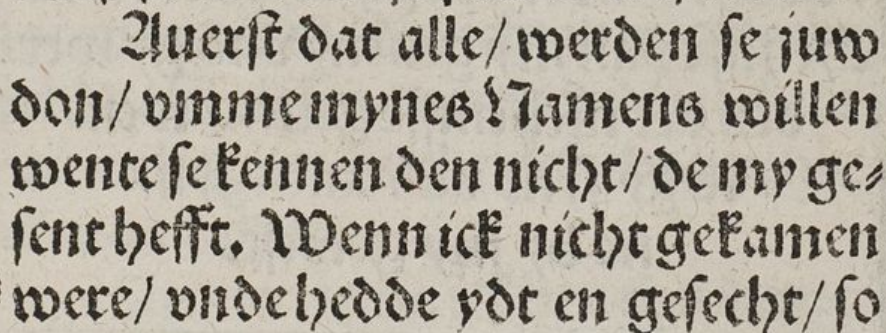 Auerst dat alle/ werden se juw
don/ vmme mynes Namens willen
wente se kennen den nicht/ de my ge⸗
sent hefft. Wenn ick nicht gekamen
were/ vnde hedde ydt en gesecht/ so